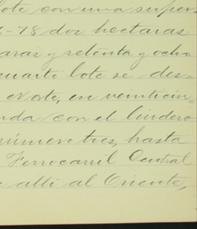 lote con una super
5-78 dos hectaras
aras y setenta y ocho
cuarto lote se des-
el Norte, en veinticin
nda con el lindero
número tres, hasta
Ferrocarril Central
e alli al Oriente,